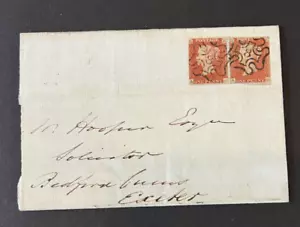 W. Hooper Esqre
Solicitor
Bedford Circus
Exeter